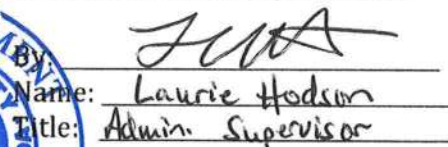 By:
Name: Laurie Hodson
Title: Admin. Supervisor